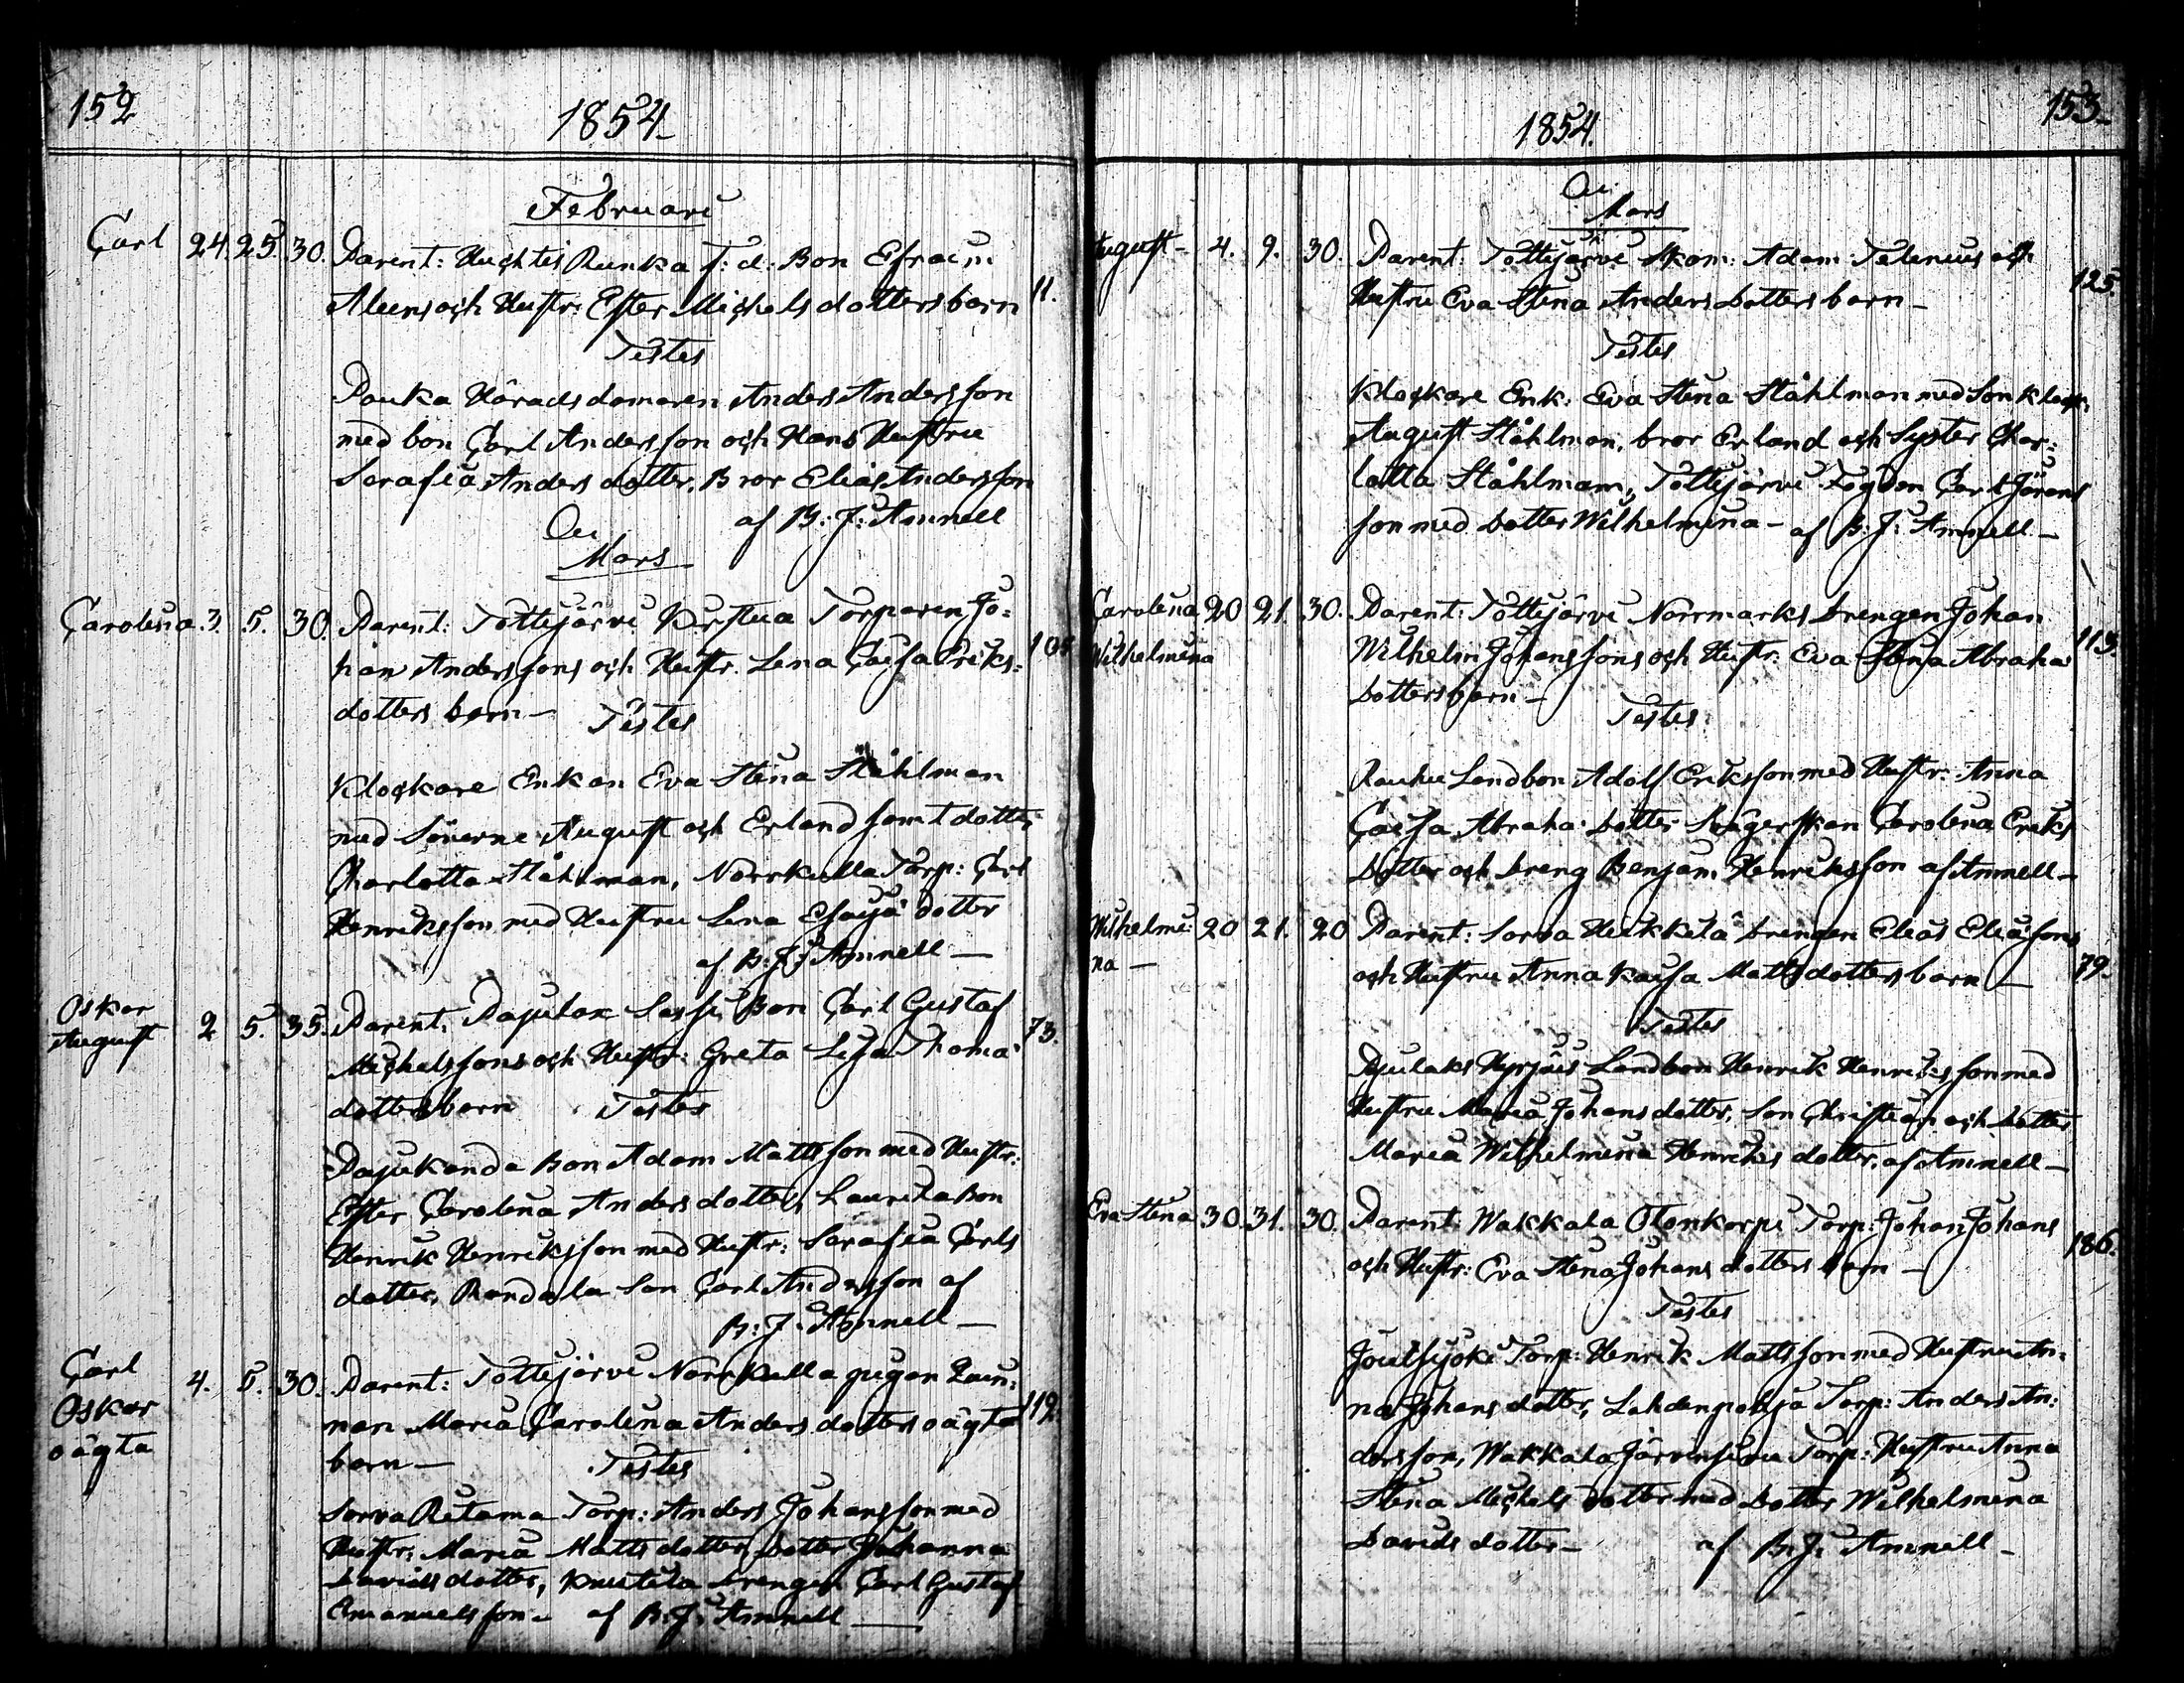 152
1854
Februari
Carl 24. 25. 30. Parent: Huchtis Runka f: d: Bon Efraim
Aleens och Hustr: Ester Michelsdotters barn 11.
Testes
Pauka Häradsdomaren Anders Andersson
med bon Carl Andersson och Hans Hustru
Serafia Andersdotter, Bror Elias Andersson
af B: J: Amnell
Mars
Carolina 3. 5. 30. Parent: Tottijärvi Torparen Jo:
han Anderssons och Hustr. Lena Caisa Eriks:
dotters barn –
Testes
Klockare Enkan Eva Stina Ståhlman
med Sönerne August och Erland samt dotter
Charlotta Ståhlman, Norrkulla Torp: Carl
Henriksson med Hustru Lena Esajä dotter
af B: J: Amnell –
Oskar
August 2 5. 35. Parent. Bon Carl Gustaf 73.
Michelssons och Hustr: Greta Lisa Thomä
dotters barn Testes
Bon Adam Mattsson med Hustr:
Ester Carolina Andersdotter, Laurila Bon
Henrik Henriksson med Hustr: Serafia Carls
dotter, Son Carl Andersson af
B: J: Amnell –
Carl
Oskar
oägta
4. 5. 30. Parent: Tottijärvi Norrkulla pigan
Maria Carolina Anders dotters oägta 112
barn –
Testes
Sorva Ritama Torp: Anders Johansson med
Hustr: Maria Matts dotter, Dotter Johanna
Davids dotter, Knutila Drengen Carl Gustaf
Emanuelsson – af B: J: Amnell –
153
1854.
Mars
August – 4. 9. 30. Parent: Tottijärvi Skom: Adam Telenius och 125.
Hustru Eva Stina Anders Dotters barn –
Testes
Klockare Enk: Eva Stina Ståhlman med Son
August Ståhlman, bror Erland och Syster Char:
lotta Ståhlman, Tottijärvi Fogden Carl Görans
son med Dotter Wilhelmina – af B: J: Amnell –
Carolina
Wilhelmina
20 21. 30. Parent: Tottijärvi Norrmarks Drengen Johan
Wilhelm Johanssons och Hustr: Eva Stina Abraha 113.
Dotters barn –
Testes
Rauhu Landbon Adolf Eriksson med Hustr: Anna
Caisa Abraha: Dotter Swägerskan Carolina Eriks
Dotter och Dreng Benjam: Henriksson af Amnell –
Wilhelmi:
na –
20 21. 20 Parent: Sorva Heikkilä Drengen Elias Eliassons
och Hustru Anna Kaisa Mattsdotters barn – 79.
Testes
Landbon Henrik Henriksson med
Hustru Maria Johans dotter, Son Christian och Dotter
Maria Wilhelmina Henriks dotter. af Amnell –
Eva Stina 30. 31. 30. Parent: Wakkala Torp: Johan Johans
och Hustr: Eva Stina Johans dotters barn – 186.
Testes
Torp: Henrik Mattsson med Hustru An:
na Johans dotter, Lahdenpohja Torp: Anders An:
dersson, Wakkala Järvensivu Torp: Hustru Anna
Stina Michels Dotter med Dotter Wilhelmina
Davids dotter – af B: J: Amnell –